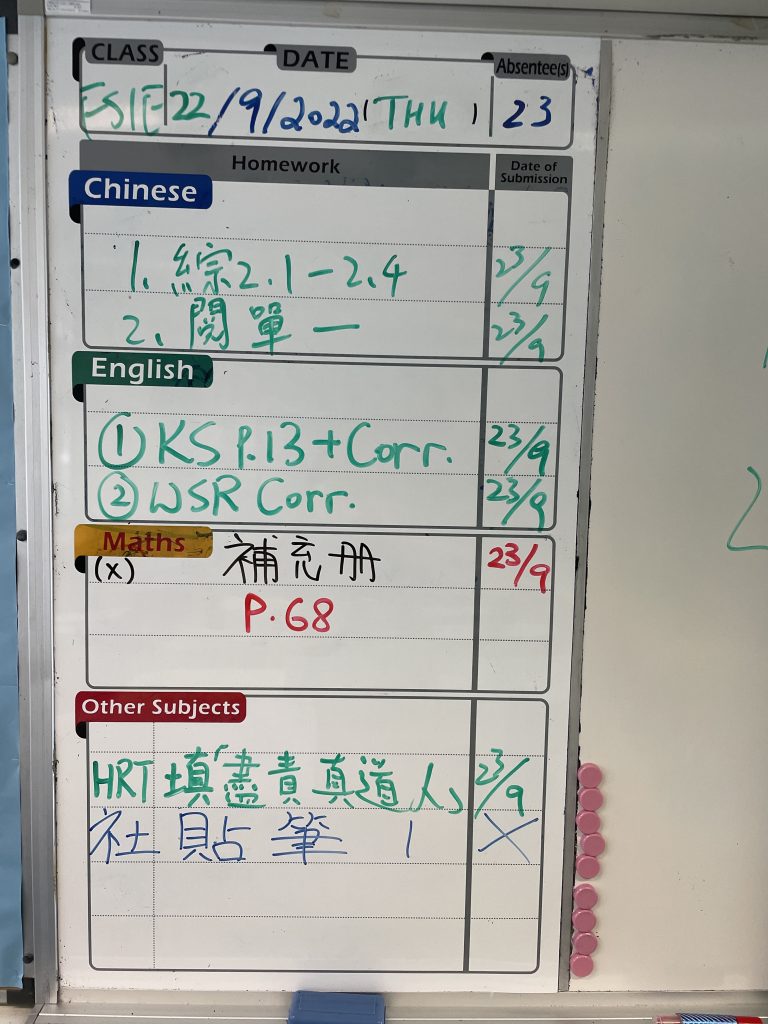 CLASS DATE Absentee(s)
FS1E 22/9/2022 (THU) 23
Homework Date of Submission
Chinese
1. 綜2.1-2.4 23/9
2. 閱單一 23/9
English
① KS P.13 + Corr. 23/9
② WSR Corr. 23/9
Maths
(x) 補充册 23/9
P.68
Other Subjects
HRT 填「盡責真道人」 23/9
社 貼筆 1 X